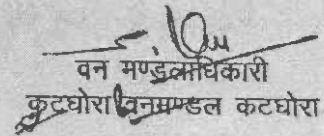 वन मण्डलाधिकारी
कटघोरा वनमण्डल कटघोरा